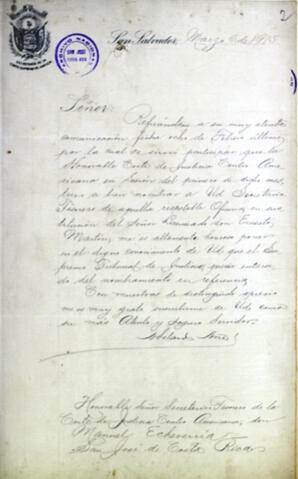 2
ARCHIVO NACIONAL
SAN JOSÉ
COSTA RICA
San Salvador, Marzo 6 de 1915
Señor:
Refiriéndome a su muy atenta
comunicación fecha ocho de Febrero último,
por la cual se sirve participar que la
Honorable Corte de Justicia Centro Ame-
ricana en sesión del primero de dicho mes,
tuvo a bien nombrar a Ud Secretario
Tesorero de aquella respetable Oficina, en sus-
titución del Señor Licenciado don Ernesto
Martín, me es altamente honroso poner
en el digno conocimiento de Ud que el Su-
premo Tribunal de Justicia, queda entera-
do del nombramiento en referencia.
Con muestras de distinguido aprecio
me es muy grato suscribirme de Ud como
su más Atento y Seguro Servidor.
Honorable Señor Secretario Tesorero de la
Corte de Justicia Centro Americana, don
Manuel Echeverría
San José de Costa Rica